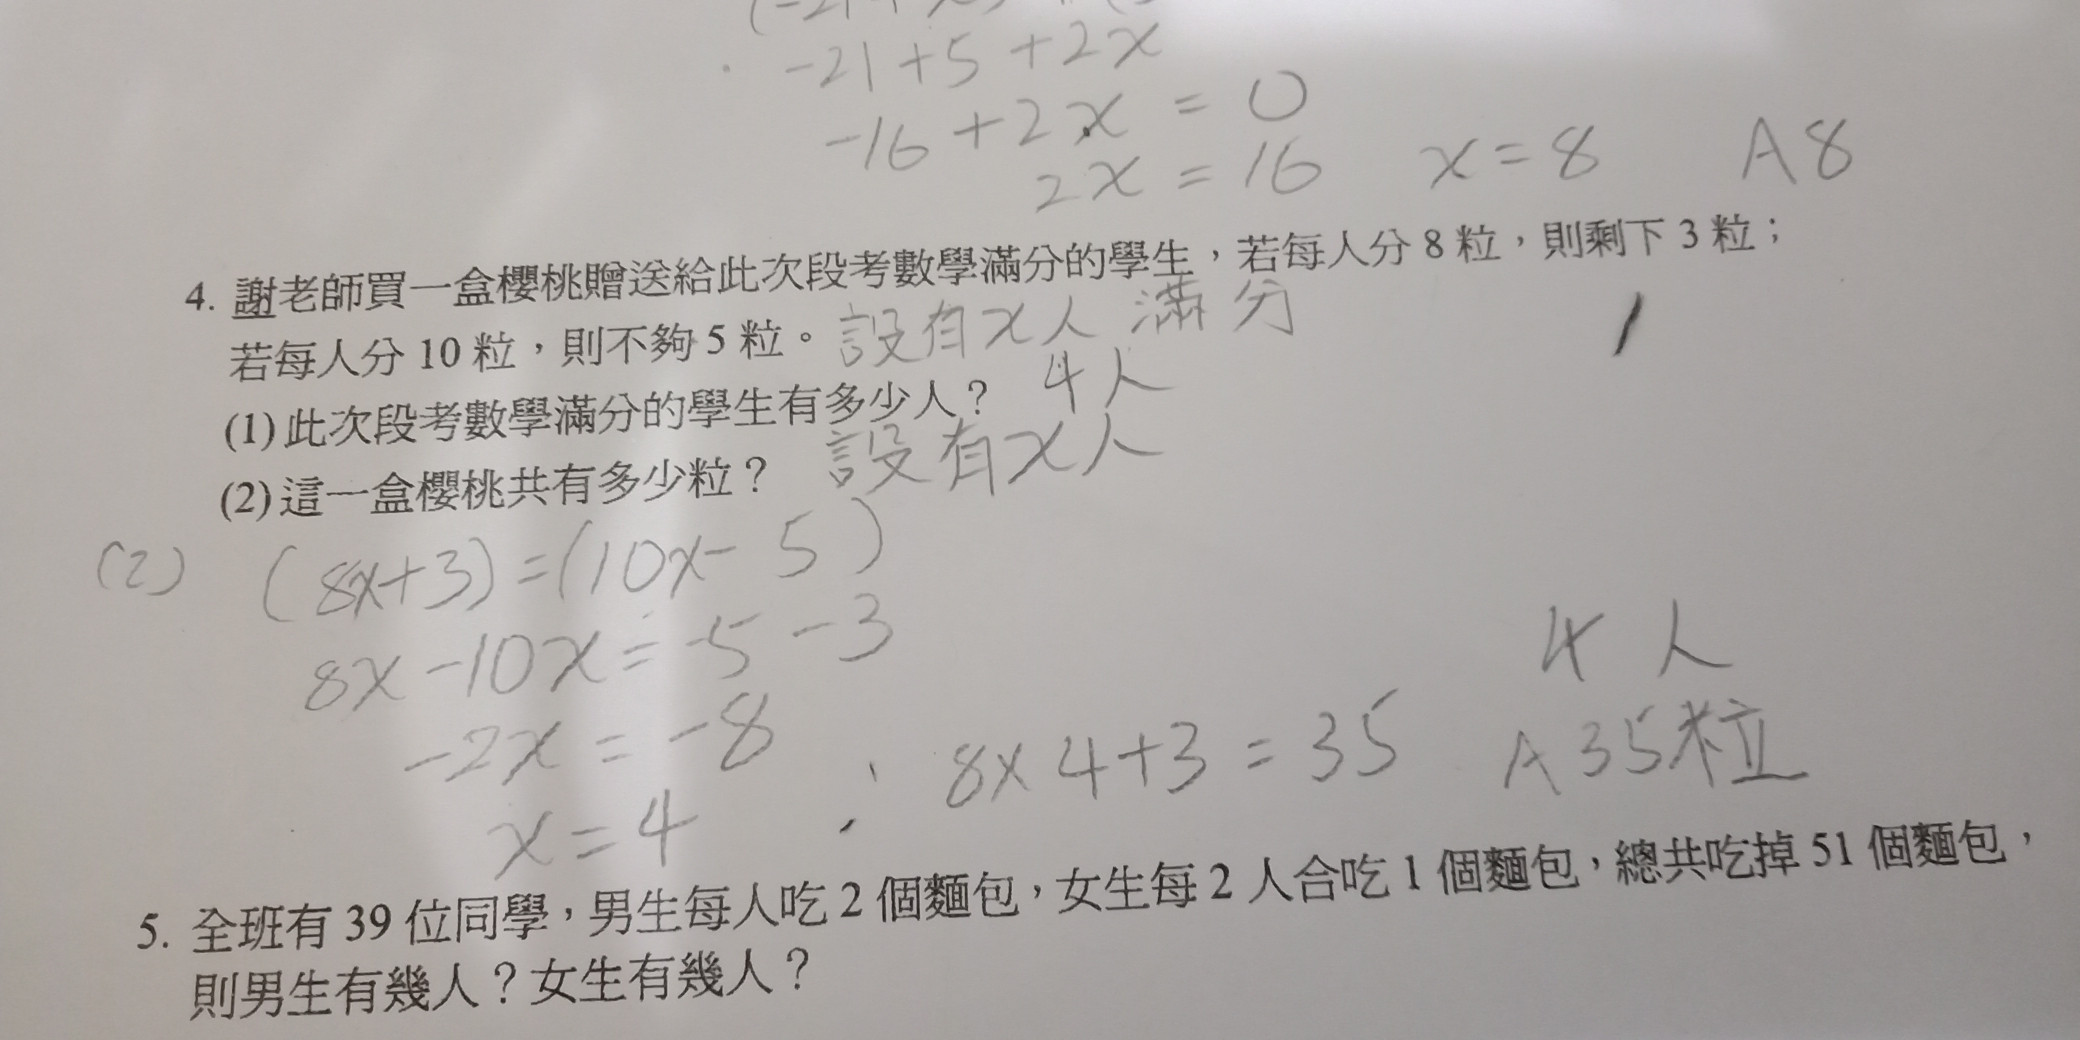 -21+5+2x
-16+2x=0
2x=16 x=8 A8
4. 謝老師買一盒櫻桃贈送給此次段考數學滿分的學生，若每人分 8 粒，則剩下 3 粒；
若每人分 10 粒，則不夠 5 粒。設有x人滿分
(1) 此次段考數學滿分的學生有多少人？ 4人
(2) 這一盒櫻桃共有多少粒？ 設有x人
(2) (8x+3)=(10x-5)
8x-10x=-5-3
4人
-2x=-8
8×4+3=35 A35粒
x=4
5. 全班有 39 位同學，男生每人吃 2 個麵包，女生每 2 人合吃 1 個麵包，總共吃掉 51 個麵包，
則男生有幾人？女生有幾人？